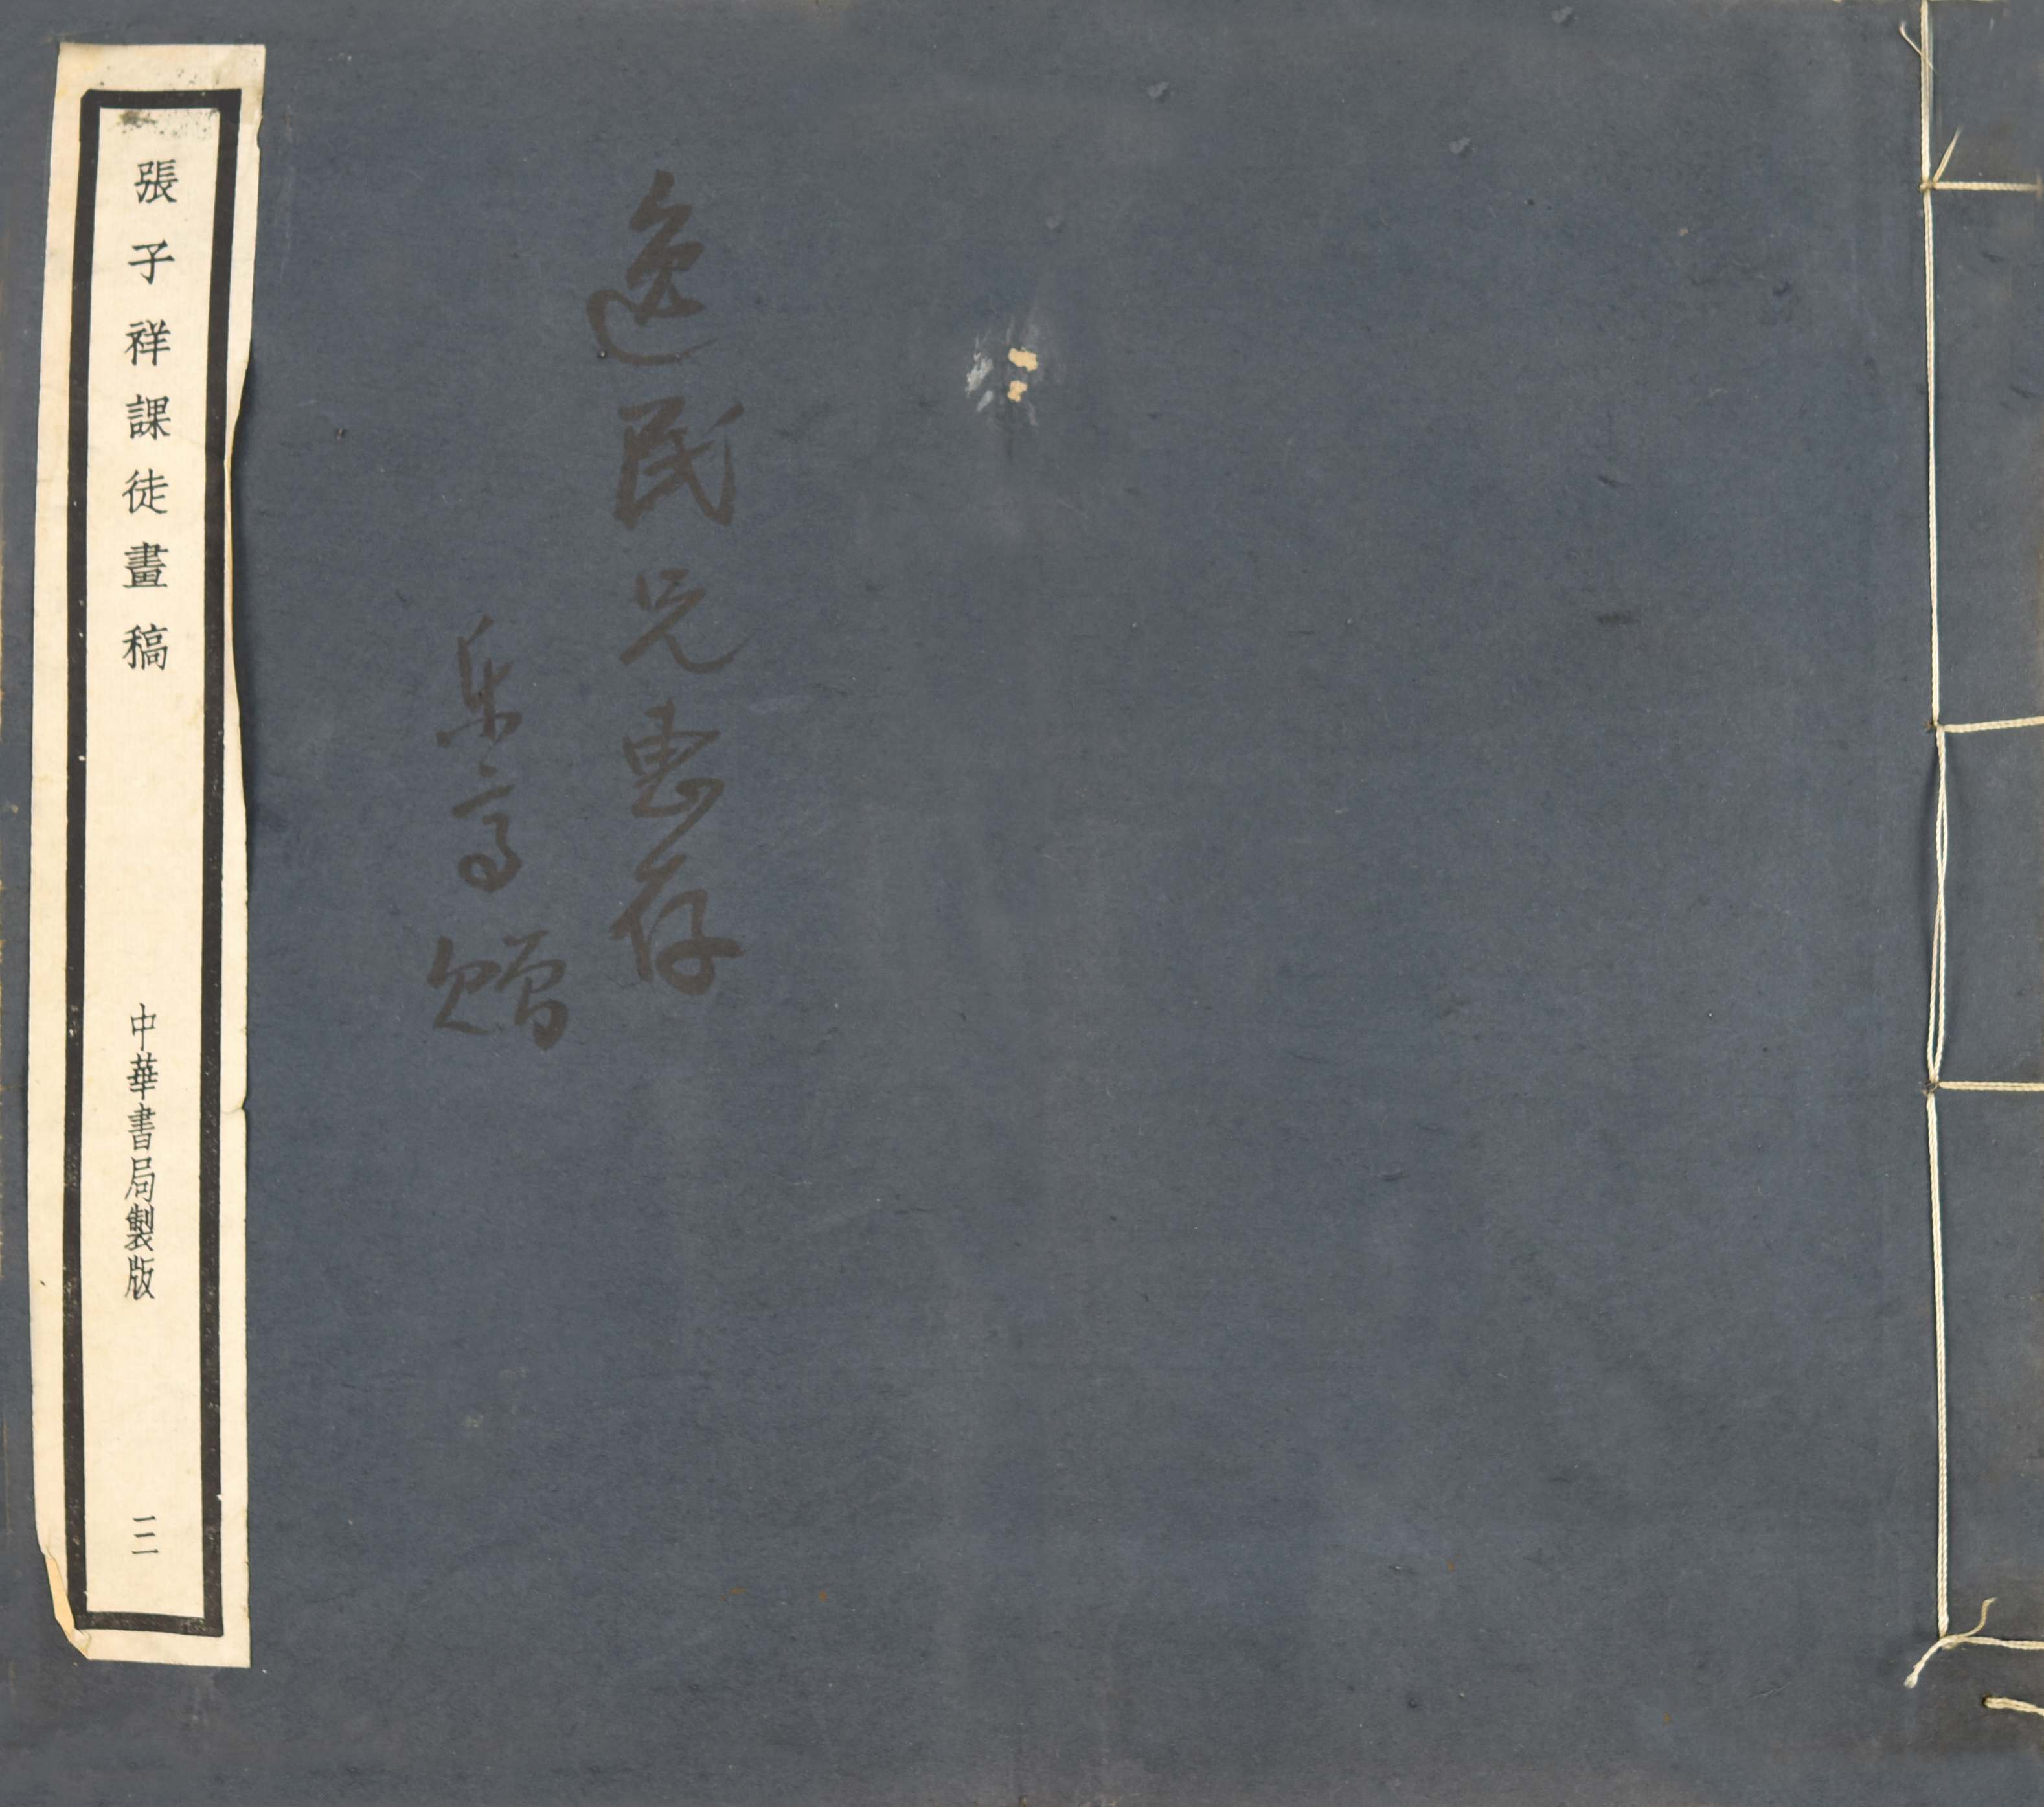 逸民兄惠存
贈
張子祥課徒畫稿
中華書局製版
三